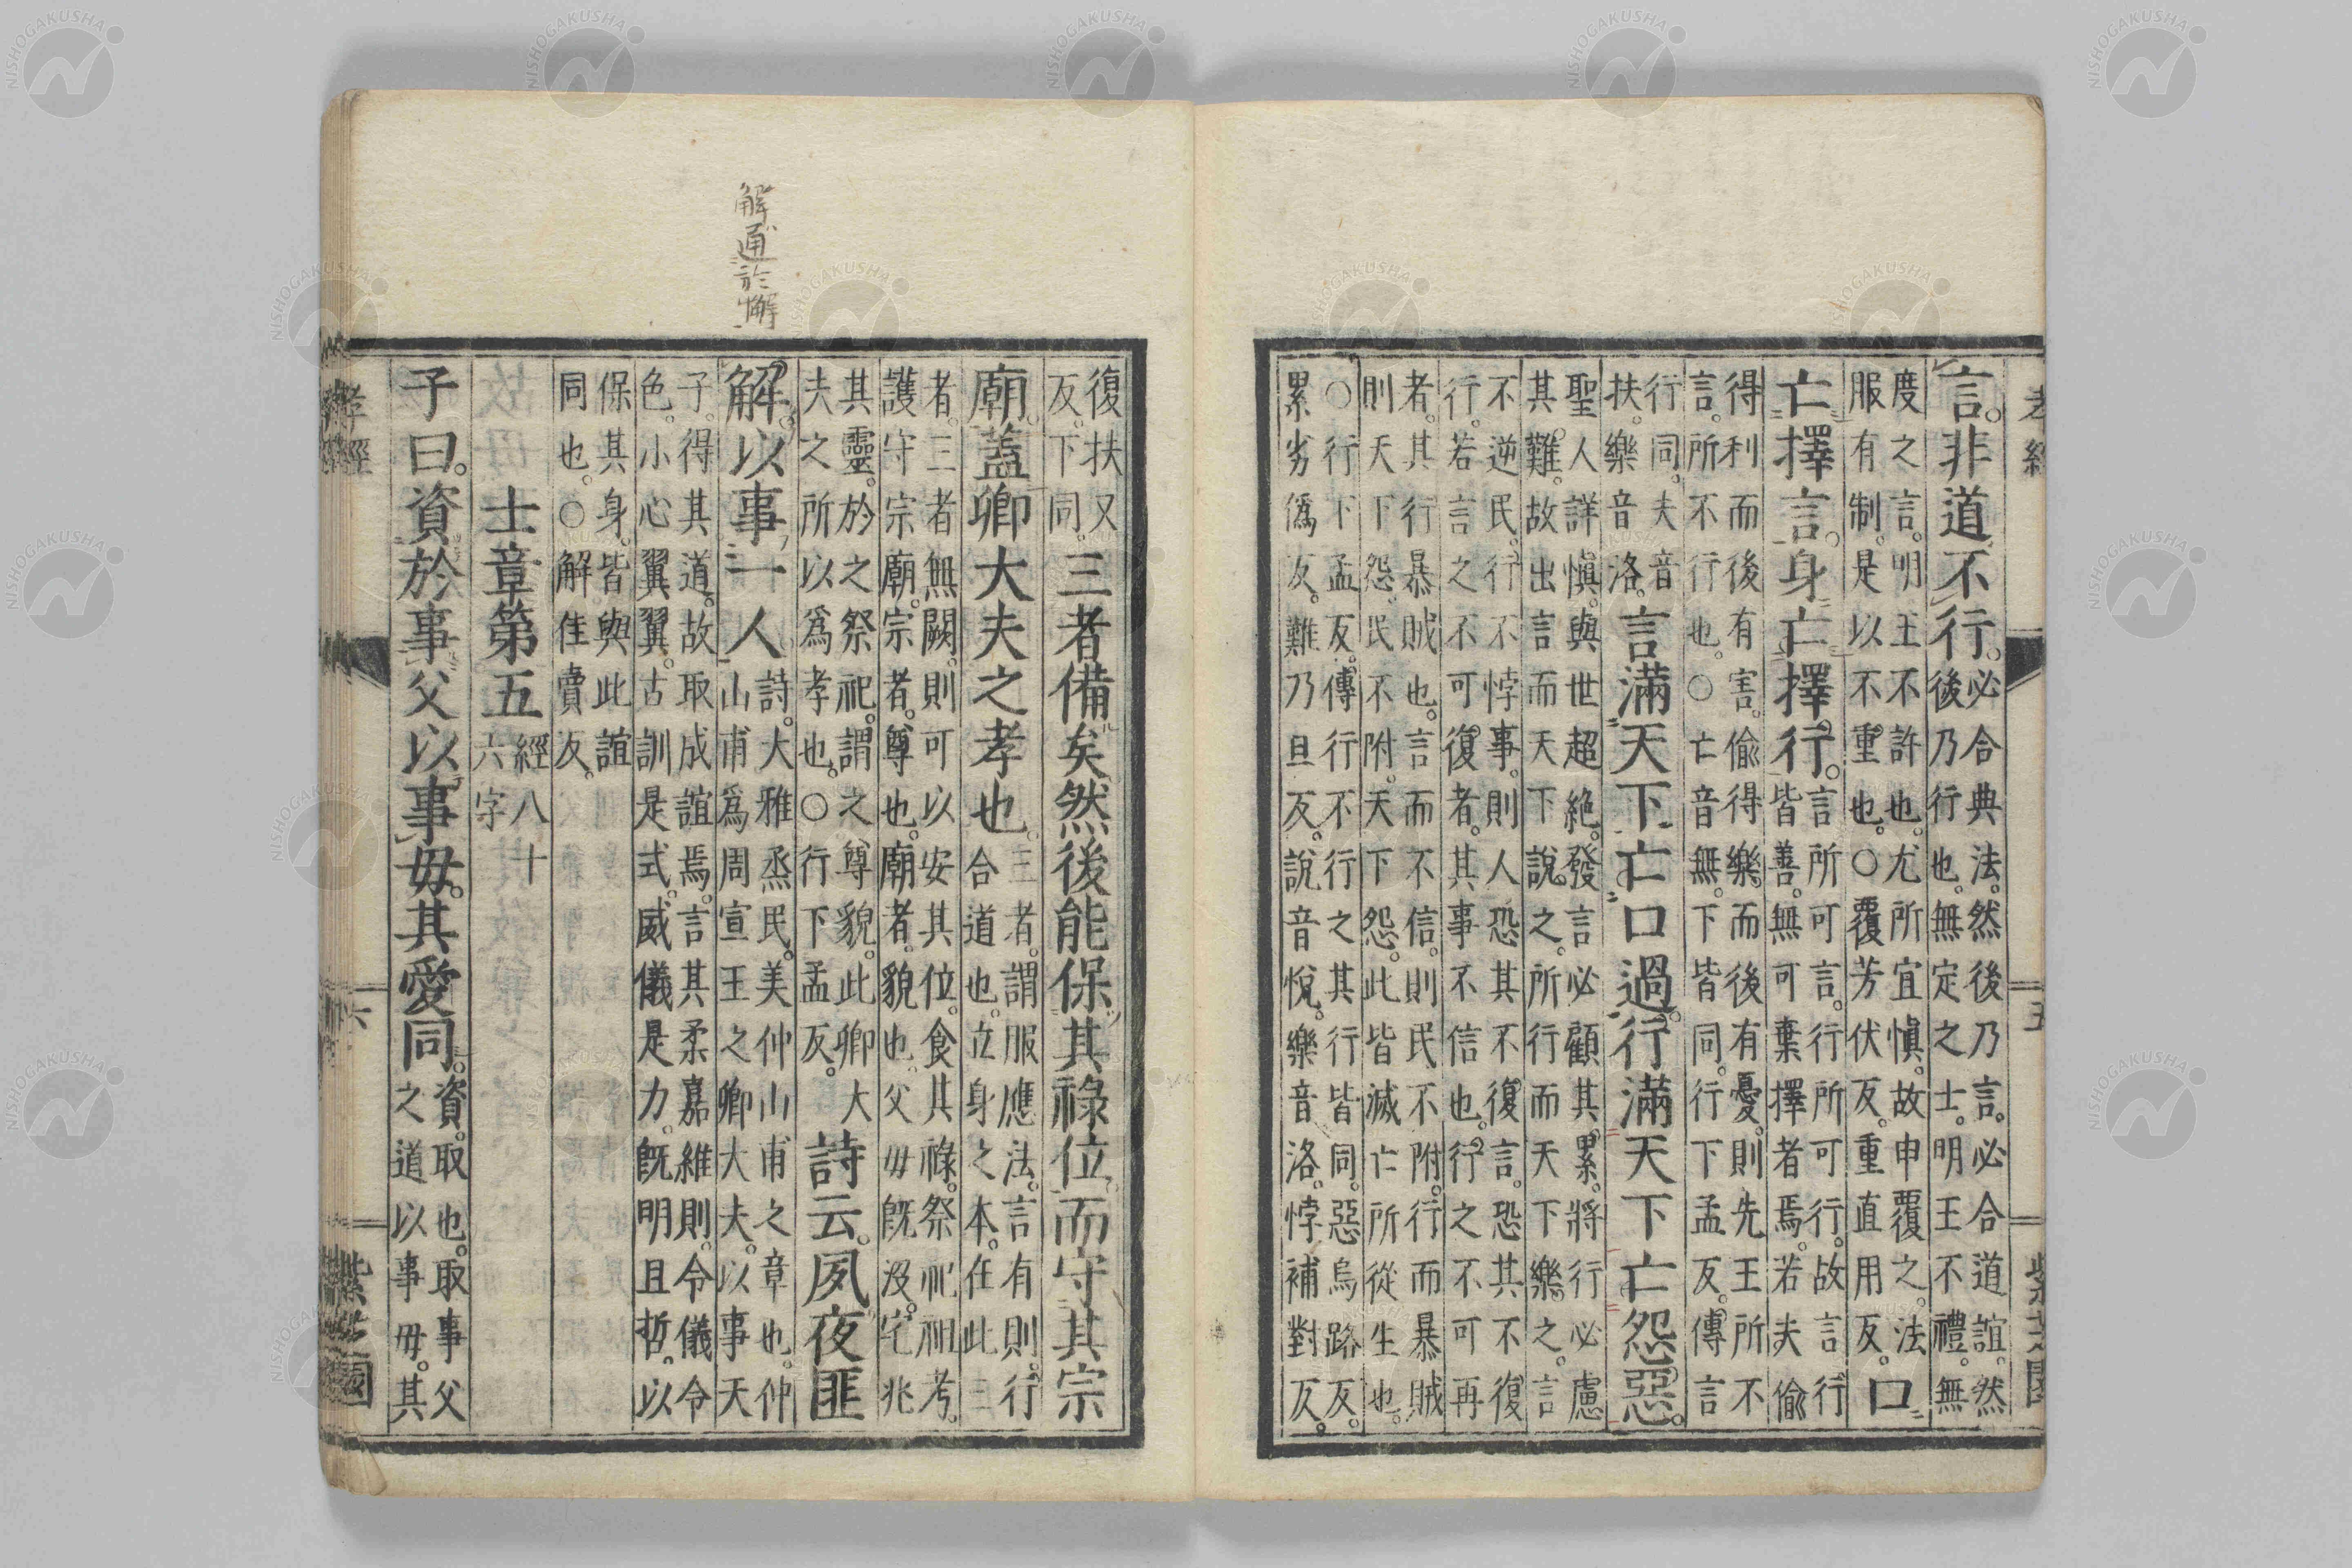 孝經 五 紫芝園
言。非道不行。必合典法。然後乃言。必合道誼。然
後乃行也。無定之士。明王不禮。無
度之言。明王不許也。尤所宜愼。故申覆之。法
服有制。是以不重也。○覆芳伏反。重直用反。口
亡擇言。身亡擇行。言所可言。行所可行。故言行
皆善。無可棄擇者焉。若夫偷
得利而後有害。偷得樂。而後有憂。則先王所不
言。所不行也。○亡音無。下皆同。行下孟反。傳言
行同。夫音
扶。樂音洛。言滿天下亡口過。行滿天下亡怨惡。
聖人詳愼。與世超絶。發言必顧其累。將行必慮
其難。故出言而天下說之。所行而天下樂之。言
不逆民。行不悖事。則人恐其不復言。恐其不復
行。若言之不可復者。其事不信也。行之不可再
者。其行暴賊也。言而不信。則民不附。行而暴賊
則天下怨。民不附。天下怨。此皆滅亡所從生也。
○行下孟反。傳行不行之其行皆同。惡烏路反。
累劣僞反。難乃旦反。說音悅。樂音洛。悖補對反。
復扶又
反。下同。三者備矣。然後能保其祿位。而守其宗
廟。蓋卿大夫之孝也。三者。謂服應法。言有則。行
合道也。立身之本。在此三
者。三者無闕。則可以安其位。食其祿。祭祀祖考。
護守宗廟。宗者。尊也。廟者。貌也。父毋旣沒。宅兆
其靈。於之祭祀。謂之尊貌。此卿大
夫之所以爲孝也。○行下孟反。詩云。夙夜匪
解通於懈
解。以事一人。詩。大雅烝民。美仲山甫之章也。仲
山甫爲周宣王之卿大夫。以事天
子。得其道。故取成誼焉。言其柔嘉維則。令儀令
色。小心翼翼。古訓是式。威儀是力。旣明且哲。以
保其身。皆與此誼
同也。○解佳賣反。
士章第五 經八十
六字
子曰。資於事父以事毋。其愛同。資。取也。取事父
之道以事毋。其
孝經 六 紫芝園